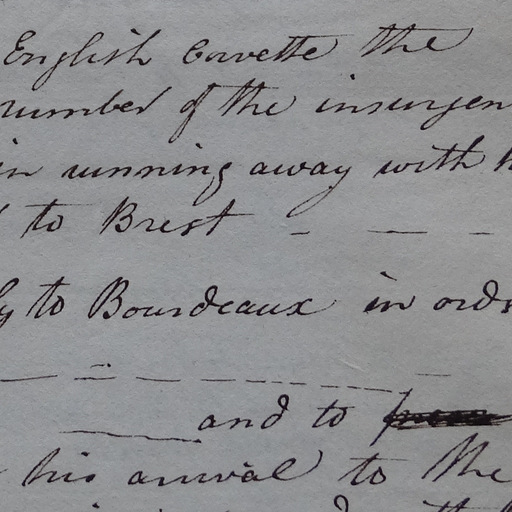 English Corvette the
number of the insurgen
in running away with h
to Brest - — -
ly to Bourdeaux in orde
and to
his arrival to the